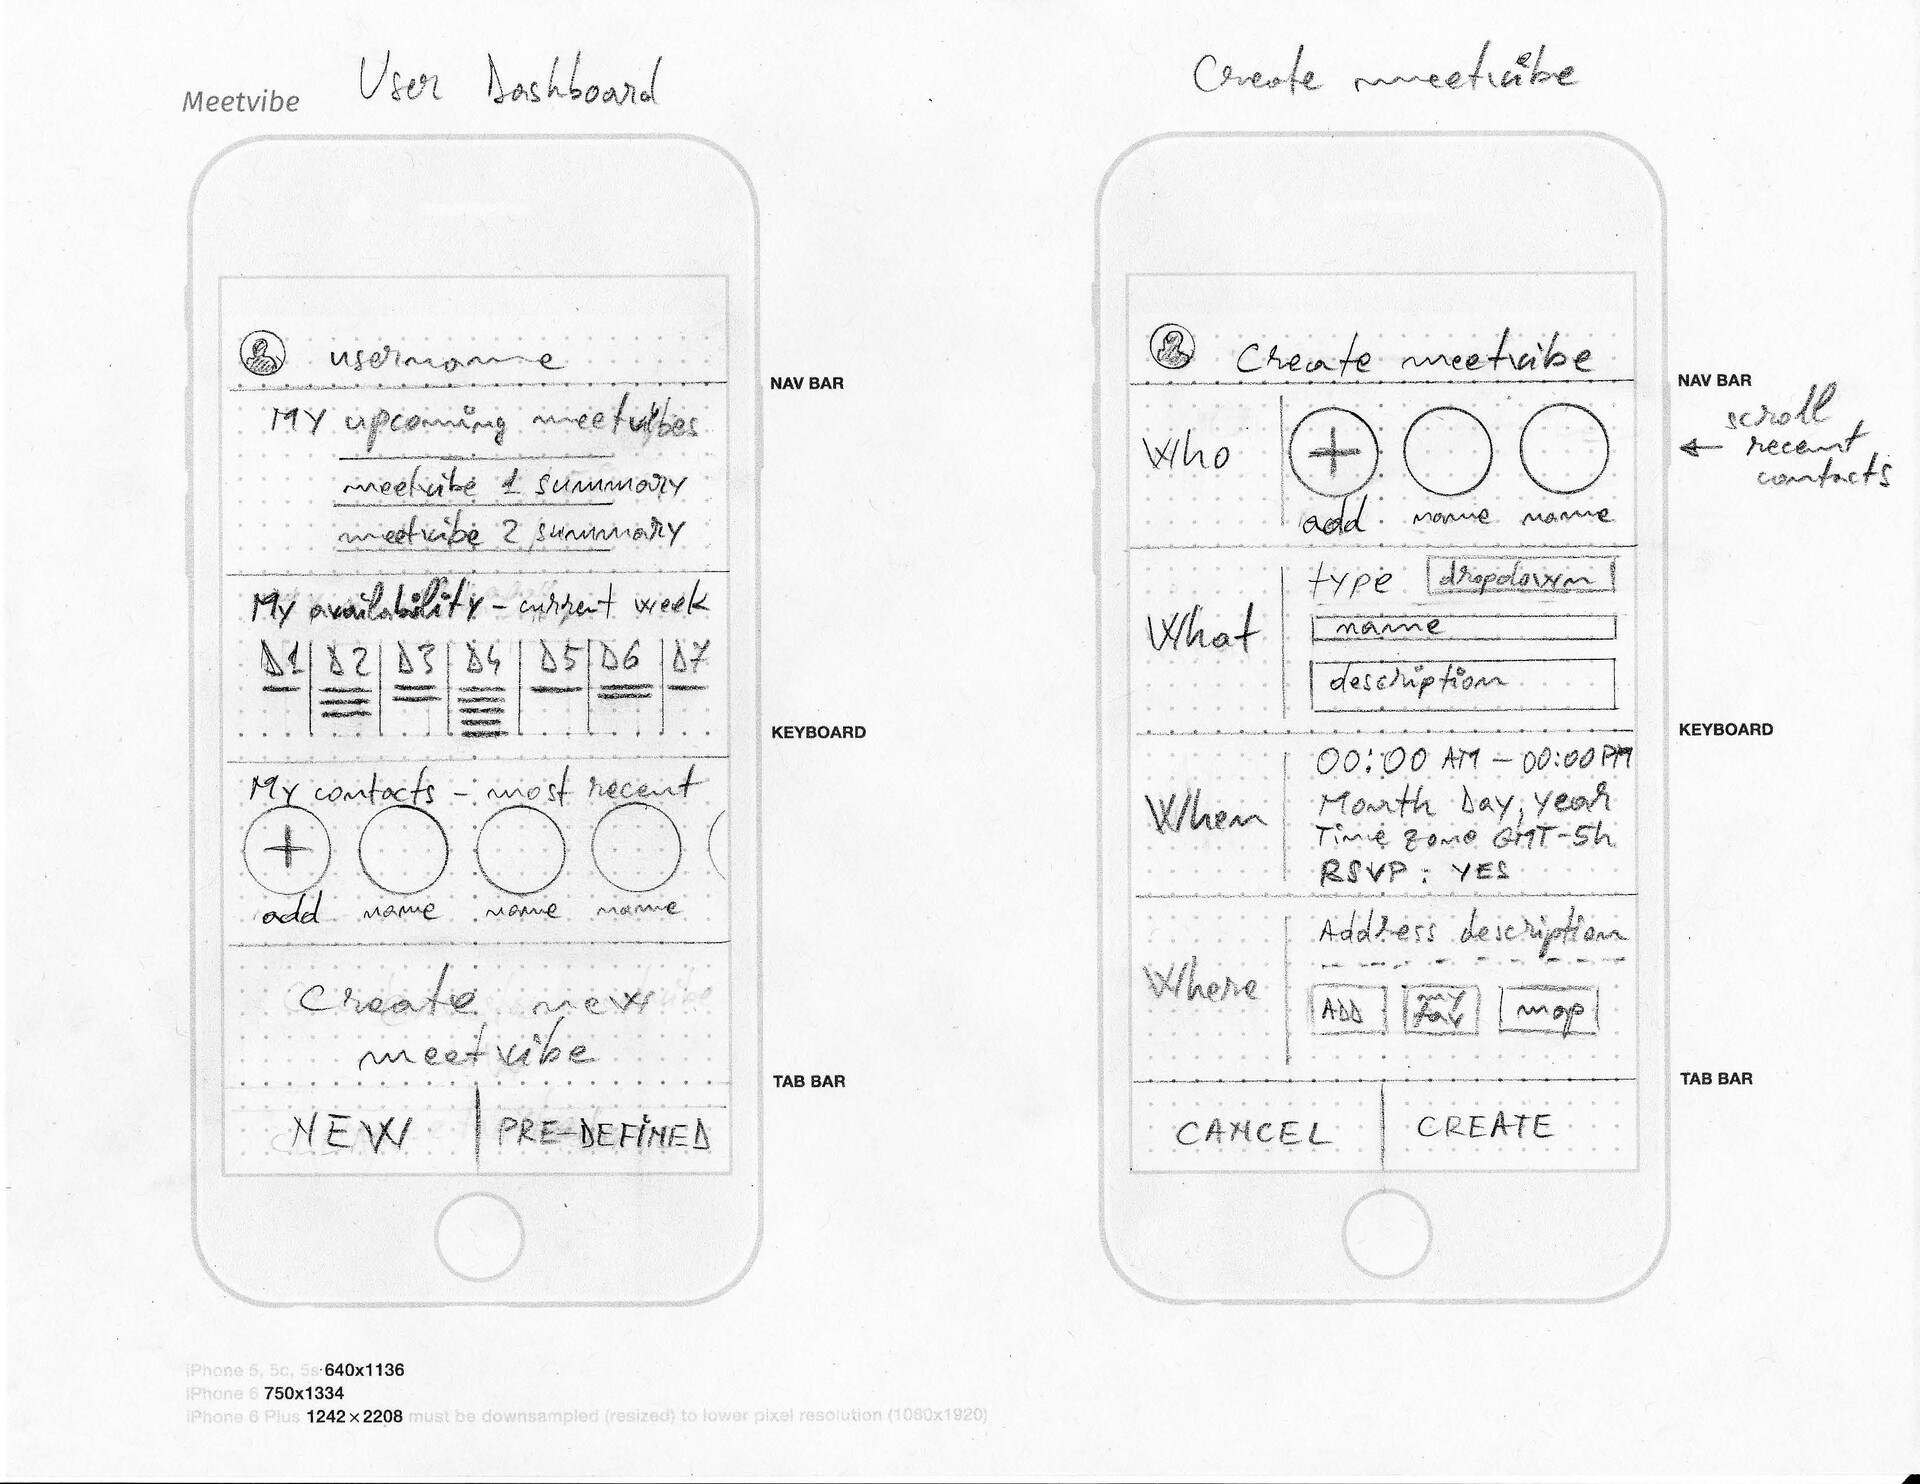 Meetvibe
User Dashboard
username
NAV BAR
My upcoming meetvibes
meetvibe 1 summary
meetvibe 2 summary
My availability - current week
D1 D2 D3 D4 D5 D6 D7
KEYBOARD
My contacts - most recent
+
add name name name
Create new
meetvibe
TAB BAR
NEW PRE-DEFINED
Create meetvibe
Create meetvibe
NAV BAR
scroll
← recent
contacts
Who
+
add name name
What
type dropdown
name
description
KEYBOARD
When
00:00 AM - 00:00 PM
Month Day, Year
Time zone GMT-5h
RSVP: YES
Where
Address description
ADD my fav map
TAB BAR
CANCEL CREATE
iPhone 5, 5c, 5s 640x1136
iPhone 6 750x1334
iPhone 6 Plus 1242×2208 must be downsampled (resized) to lower pixel resolution (1080x1920)